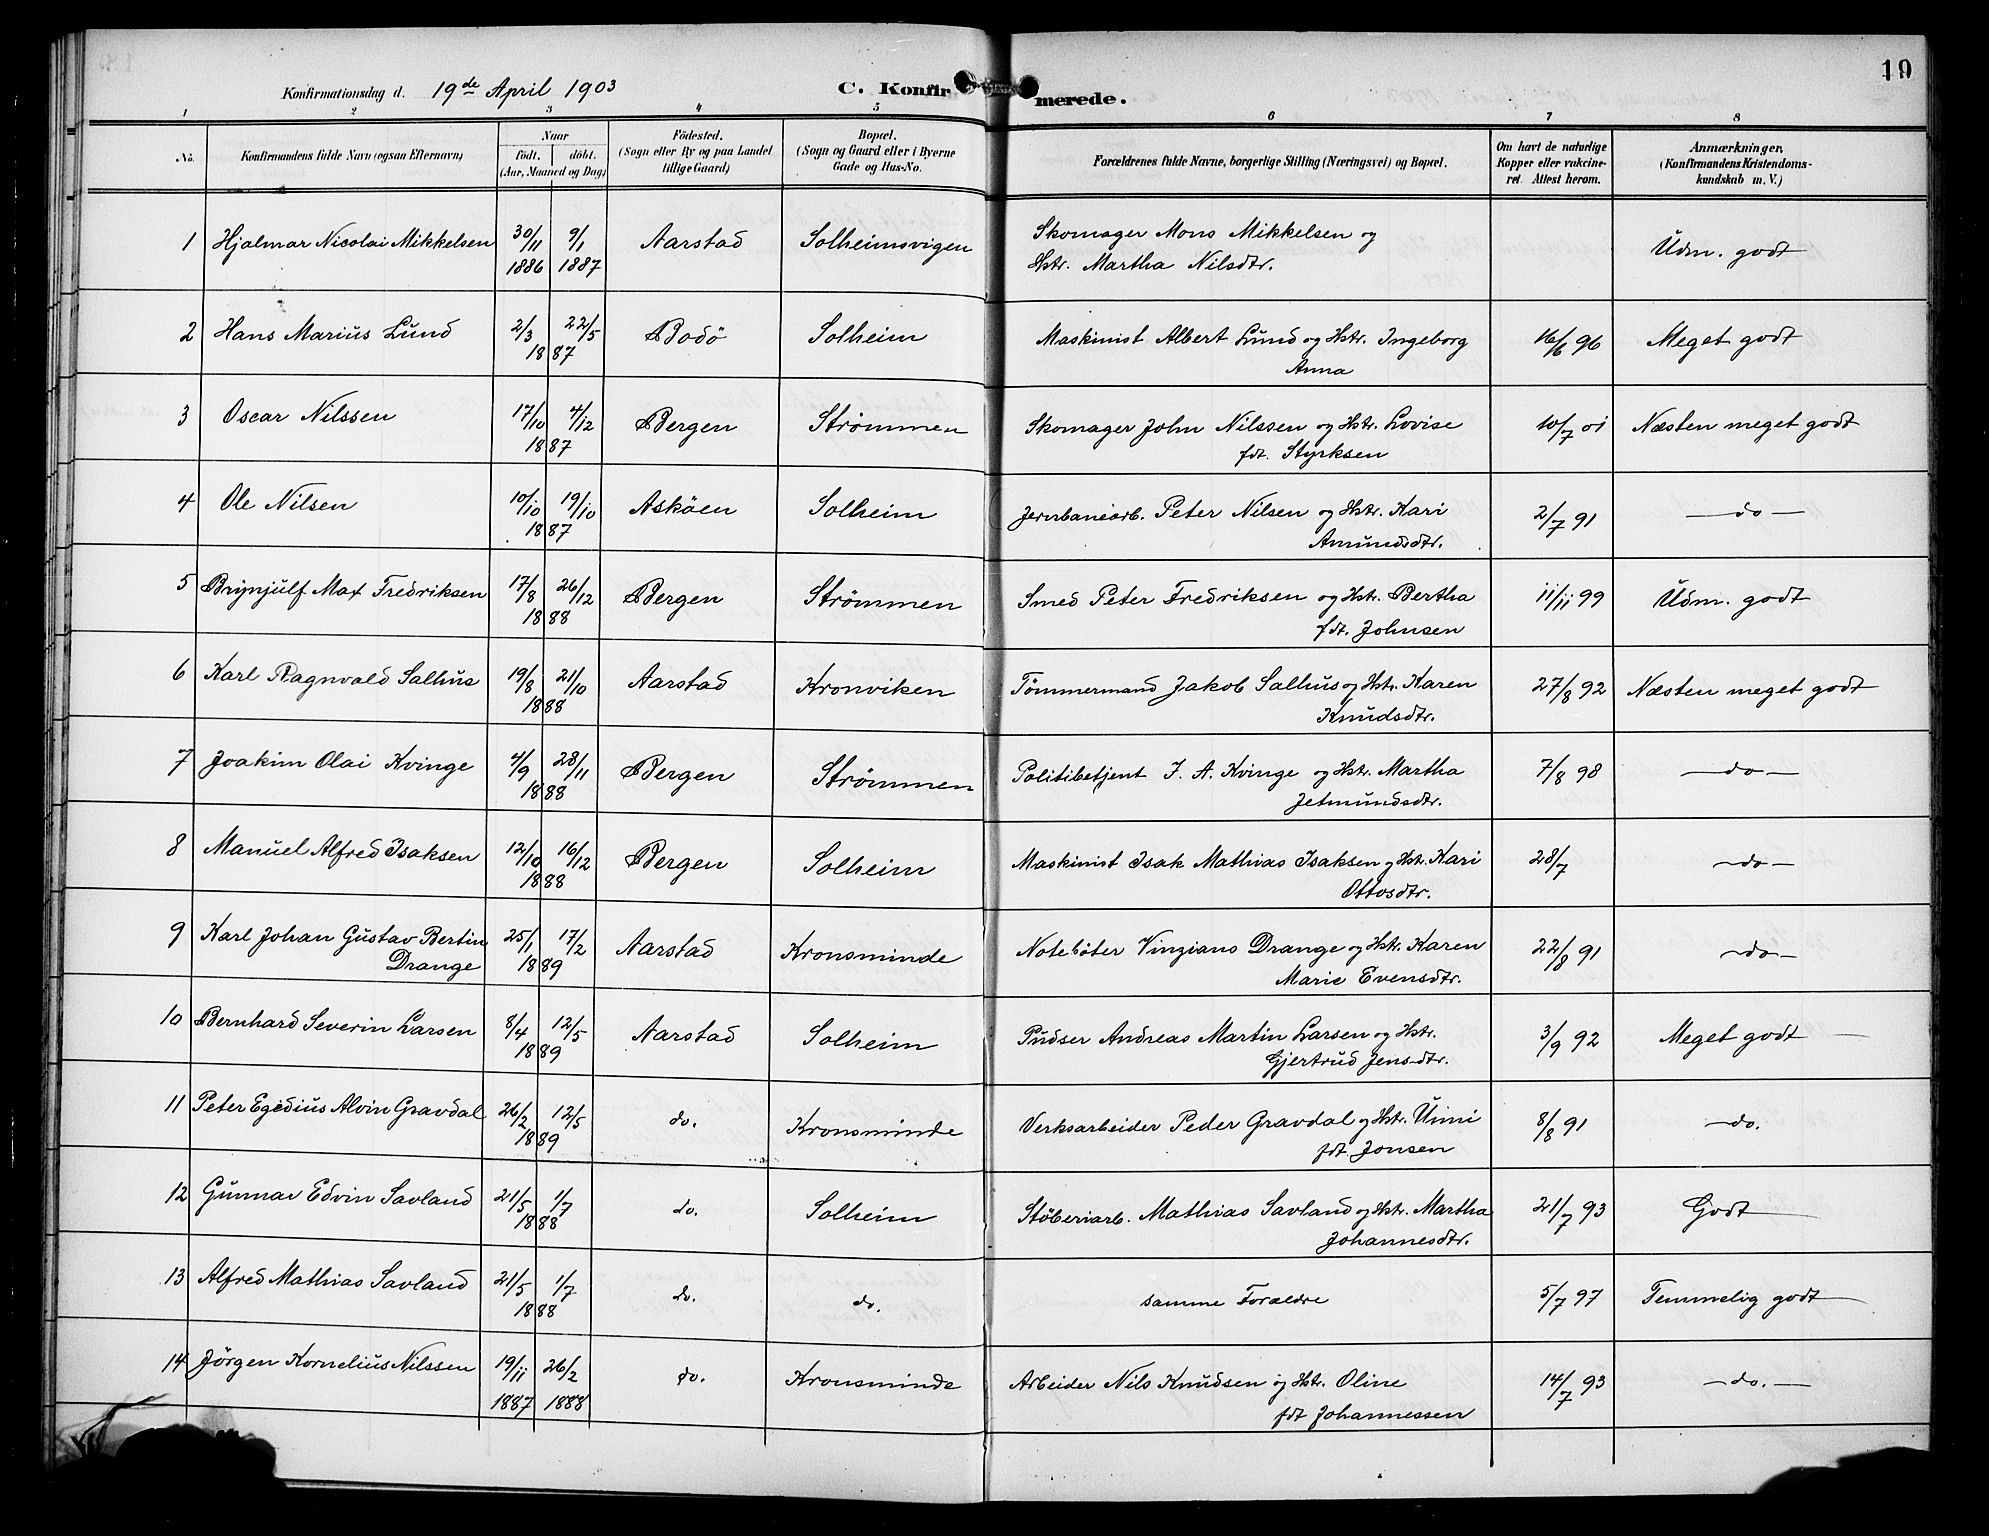 19
Konfirmationsdag d. 19de April 1903
C. Konfirmerede.
1 2 3 4 5 6 7 8
No. Konfirmandens fulde Navn (ogsaa Efternavn) Naar födt. döbt. (Aar, Maaned og Dag) Födested. (Sogn eller By og paa Landet tillige Gaard) Bopæl. (Sogn og Gaard eller i Byerne Gade og Hus-No. Forældrenes fulde Navne, borgerlige Stilling (Næringsvei) og Bopæl. Om havt de naturlige Kopper eller vakcineret. Attest herom. Anmærkninger, (Konfirmandens Kristendomskundskab m. V.)
1 Hjalmar Nicolai Mikkelsen 30/11 1886 9/1 1887 Aarstad Solheimsvigen Skomager Mons Mikkelsen og
Hstr. Martha Nilsdtr. Udm. godt
2 Hans Marius Lund 2/3 22/5 1887 Bodö Solheim Maskinist Albert Lund og Hstr. Ingeborg
Anna 16/6 96 Meget godt
3 Oscar Nilssen 17/10 4/12 1887 Bergen Strömmen Skomager John Nilssen og Hstr. Lovise
fdt. Styrksen 10/7 01 Næsten meget godt
4 Ole Nilsen 10/10 19/10 1887 Asköen Solheim Jernbanearb. Peter Nilsen og Hstr. Kari
Amundsdtr. 2/7 91 — do —
5 Brynjulf Max Fredriksen 17/8 26/12 1888 Bergen Strömmen Smed Peter Fredriksen og Hstr. Bertha
fdt. Johnsen 11/11 99 Udm. godt
6 Karl Ragnvald Salhus 19/8 21/10 1888 Aarstad Kronviken Tömmermand Jakob Salhus og Hstr. Karen
Knudsdtr. 27/8 92 Næsten meget godt
7 Joakim Olai Kvinge 4/9 28/11 1888 Bergen Strömmen Politibetjent J. A. Kvinge og Hstr. Martha
Jetmundsdtr. 7/8 98 — do —
8 Manuel Alfred Isaksen 12/10 16/12 1888 Bergen Solheim Maskinist Isak Mathias Isaksen og Hstr. Kari
Ottosdtr. 28/7 — do —
9 Karl Johan Gustav Bertin
Drange 25/1 17/2 1889 Aarstad Kronsminde Noteböter Vinzians Drange og Hstr. Karen
Marie Evensdtr. 22/8 91 — do —
10 Bernhard Severin Larsen 8/4 12/5 1889 Aarstad Solheim Pudser Andreas Martin Larsen og Hstr.
Gjertrud Jensdtr. 3/9 92 Meget godt
11 Peter Egidius Alvin Gravdal 26/2 12/5 1889 do. Kronsminde Verksarbeider Peder Gravdal og Hstr. Unni
fdt. Jonsen 8/8 91 — do.
12 Gunnar Edvin Savland 21/5 1/7 1888 do. Solheim Stöberiarb. Mathias Savland og Hstr. Martha
Johannesdtr. 21/7 93 Godt
13 Alfred Mathias Savland 21/5 1/7 1888 do. do. samme Forældre 5/7 97 Temmelig godt
14 Jörgen Kornelius Nilssen 19/11 1887 26/2 1888 do. Kronsminde Arbeider Nils Knudsen og Hstr. Oline
fdt Johannessen 14/7 93 — do. —